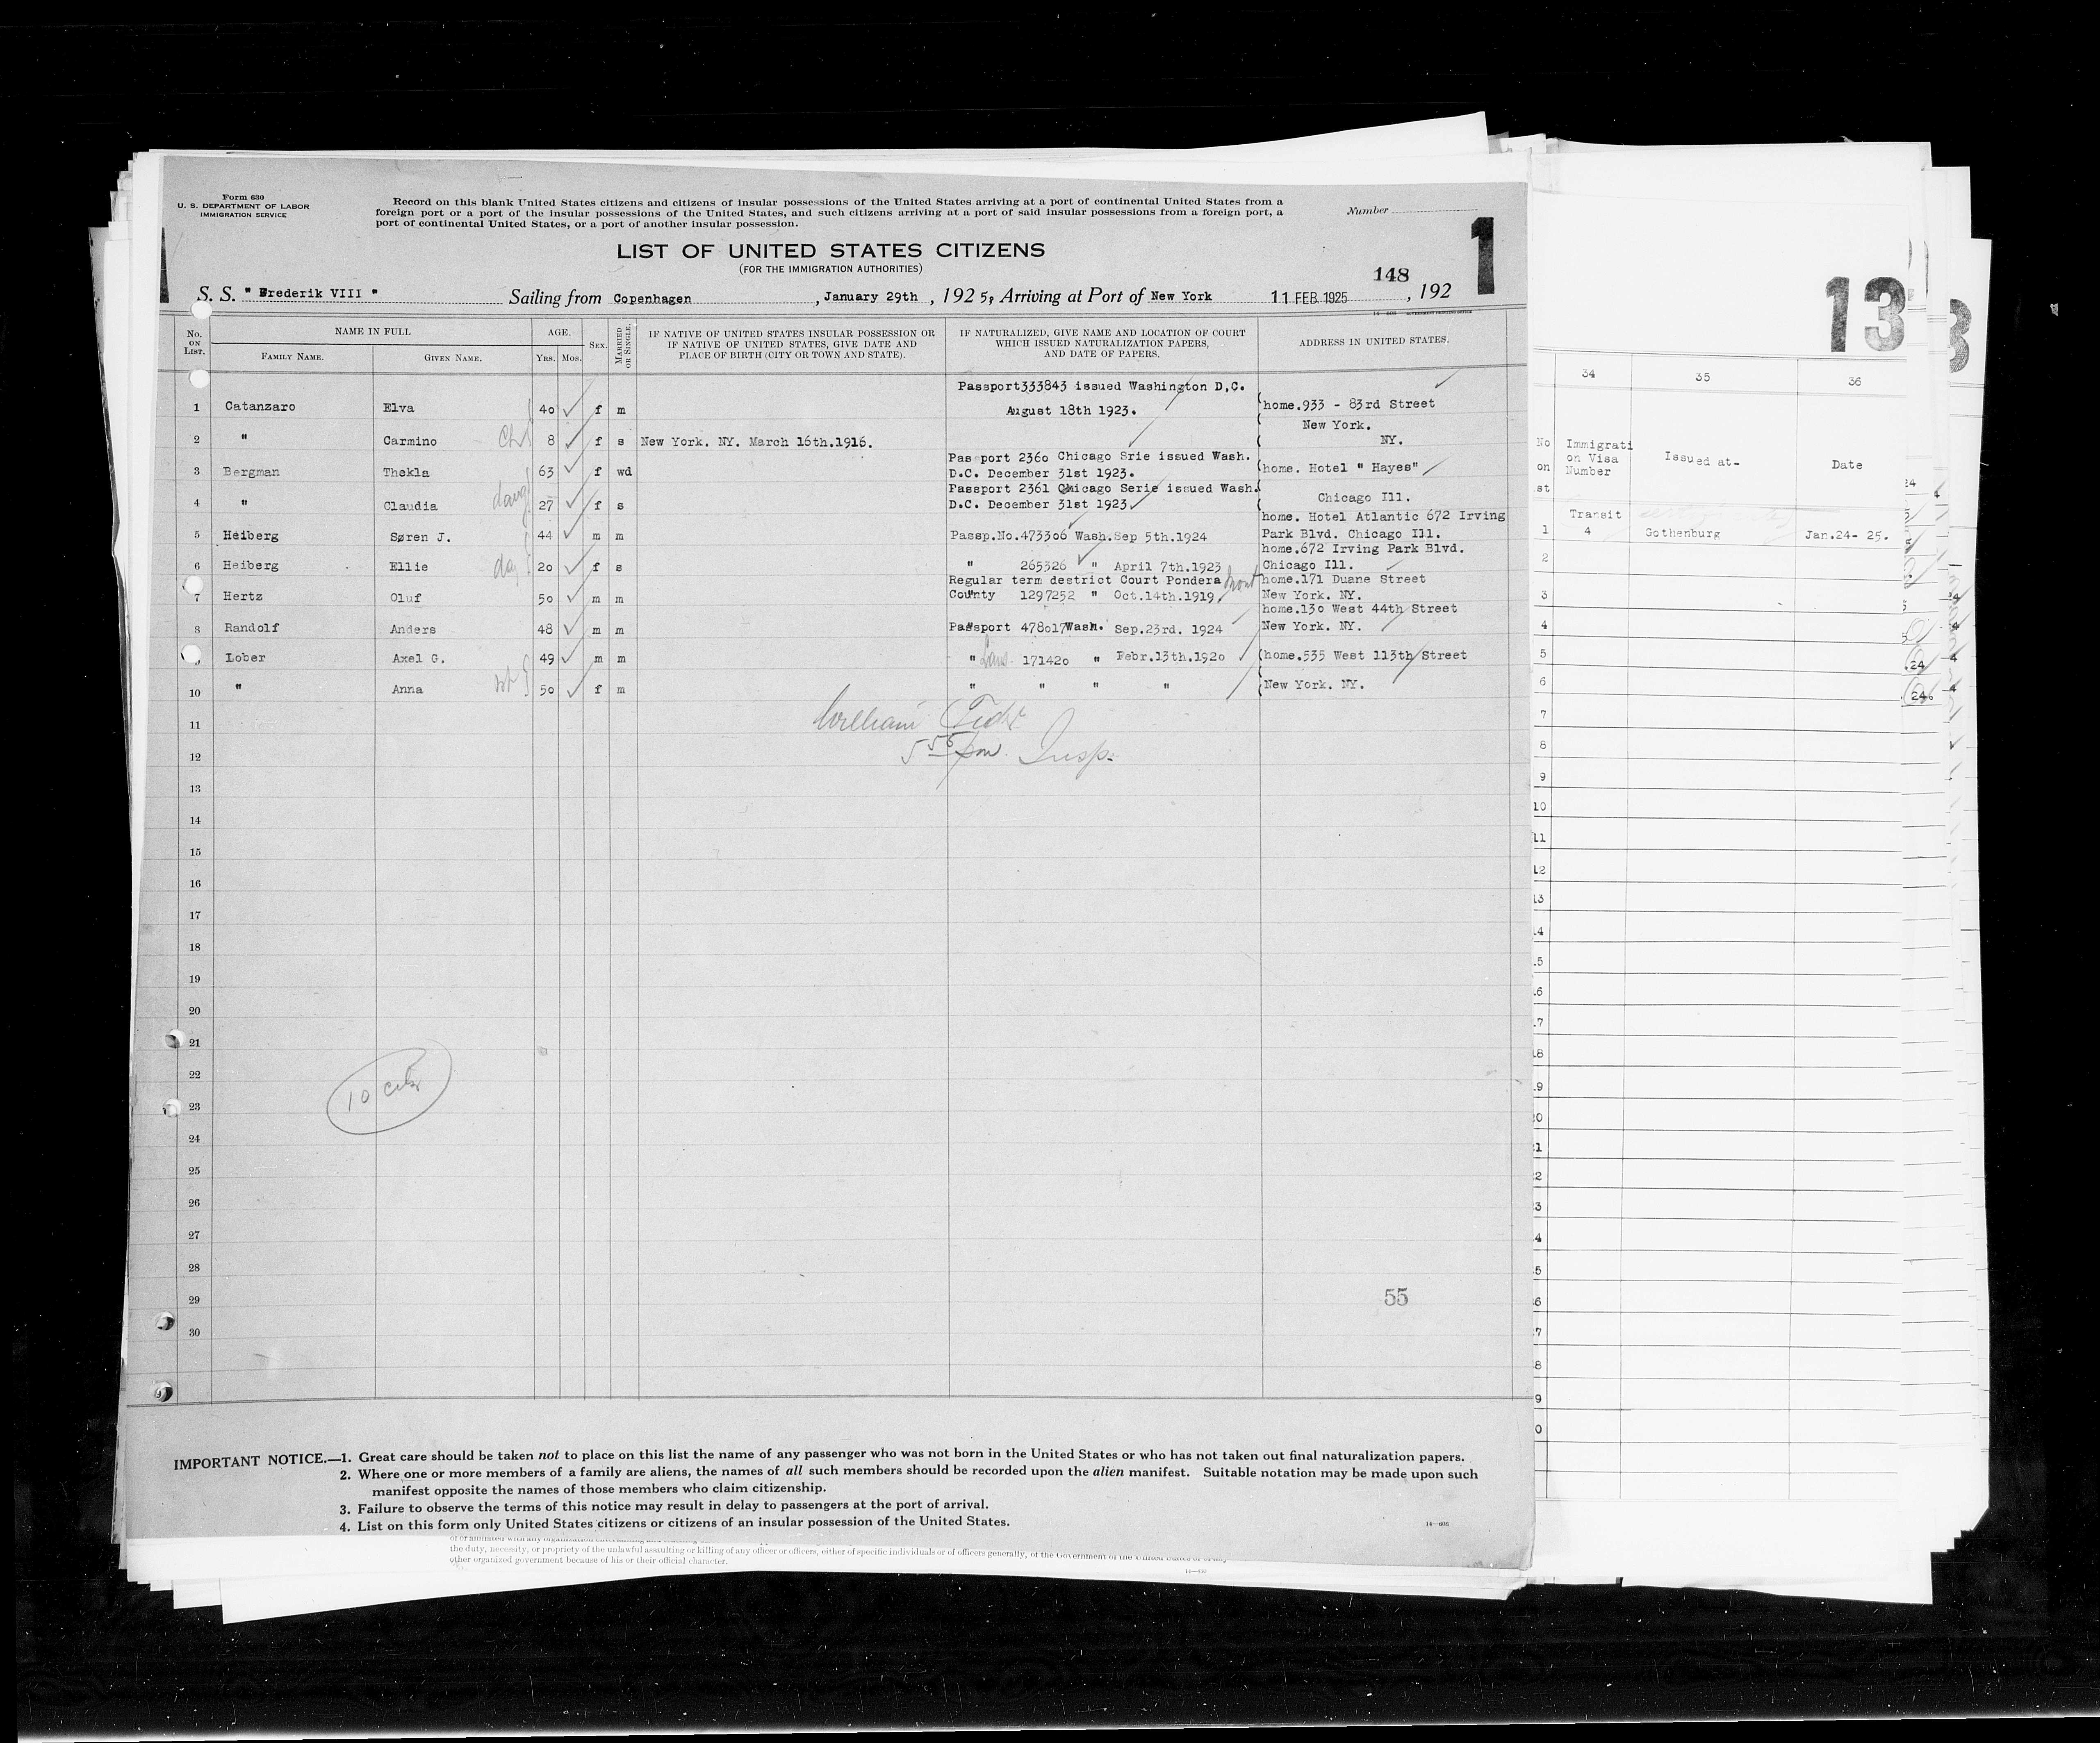 Form 630
U. S. DEPARTMENT OF LABOR
IMMIGRATION SERVICE
Record on this blank United States citizens and citizens of insular possessions of the United States arriving at a port of continental United States from a
foreign port or a port of the insular possessions of the United States, and such citizens arriving at a port of said insular possessions from a foreign port, a
port of continental United States, or a port of another insular possession.
Number
1
LIST OF UNITED STATES CITIZENS
(FOR THE IMMIGRATION AUTHORITIES)
148
S. S. " Frederik VIII " Sailing from Copenhagen, January 29th, 1925, Arriving at Port of New York 11 FEB. 1925, 192
No. ON LIST.
NAME IN FULL
FAMILY NAME. GIVEN NAME.
AGE.
YRS. MOS.
SEX.
MARRIED OR SINGLE.
IF NATIVE OF UNITED STATES INSULAR POSSESSION OR
IF NATIVE OF UNITED STATES, GIVE DATE AND
PLACE OF BIRTH (CITY OR TOWN AND STATE).
IF NATURALIZED, GIVE NAME AND LOCATION OF COURT
WHICH ISSUED NATURALIZATION PAPERS,
AND DATE OF PAPERS.
ADDRESS IN UNITED STATES.
Passport333843 issued Washington D.C.
1 Catanzaro Elva 40 f m August 18th 1923. home.933 - 83rd Street
New York.
2 " Carmino 8 f s New York. NY. March 16th.1916. NY.
Passport 2360 Chicago Srie issued Wash.
3 Bergman Thekla 63 f wd D.C. December 31st 1923. home. Hotel " Hayes"
Passport 2361 Chicago Serie issued Wash.
4 " Claudia daug 27 f s D.C. December 31st 1923 Chicago Ill.
home. Hotel Atlantic 672 Irving
5 Heiberg Søren J. 44 m m Passp.No.473306 Wash.Sep 5th.1924 Park Blvd. Chicago Ill.
home.672 Irving Park Blvd.
6 Heiberg Ellie 20 f s " 265326 " April 7th.1923 Chicago Ill.
Regular term destrict Court Pondera Mont home.171 Duane Street
7 Hertz Oluf 50 m m County 1297252 " Oct.14th.1919. New York. NY.
home.130 West 44th Street
8 Randolf Anders 48 m m Passport 478017Wash. Sep.23rd. 1924 New York. NY.
Lober Axel G. 49 m m " 171420 " Febr.13th.1920 home.535 West 113th Street
10 " Anna 50 f m " " " " New York. NY.
11
William
12
5 55 pm. Insp.
13
14
15
16
17
18
19
20
21
22
10
23
24
25
26
27
28
29
55
30
IMPORTANT NOTICE.—1. Great care should be taken not to place on this list the name of any passenger who was not born in the United States or who has not taken out final naturalization papers.
2. Where one or more members of a family are aliens, the names of all such members should be recorded upon the alien manifest. Suitable notation may be made upon such
manifest opposite the names of those members who claim citizenship.
3. Failure to observe the terms of this notice may result in delay to passengers at the port of arrival.
4. List on this form only United States citizens or citizens of an insular possession of the United States.
14—606
the duty, necessity, or propriety of the unlawful assaulting or killing of any officer or officers, either of specific individuals or of officers generally, of the Government of the United States
other organized government because of his or their official character.
13
34 35 36
No
on
st
Immigrati
on Visa
Number
Issued at-
Date
Transit
1 4 Gothenburg Jan.24- 25.
2
3
4
5
6
7
8
9
10
11
12
13